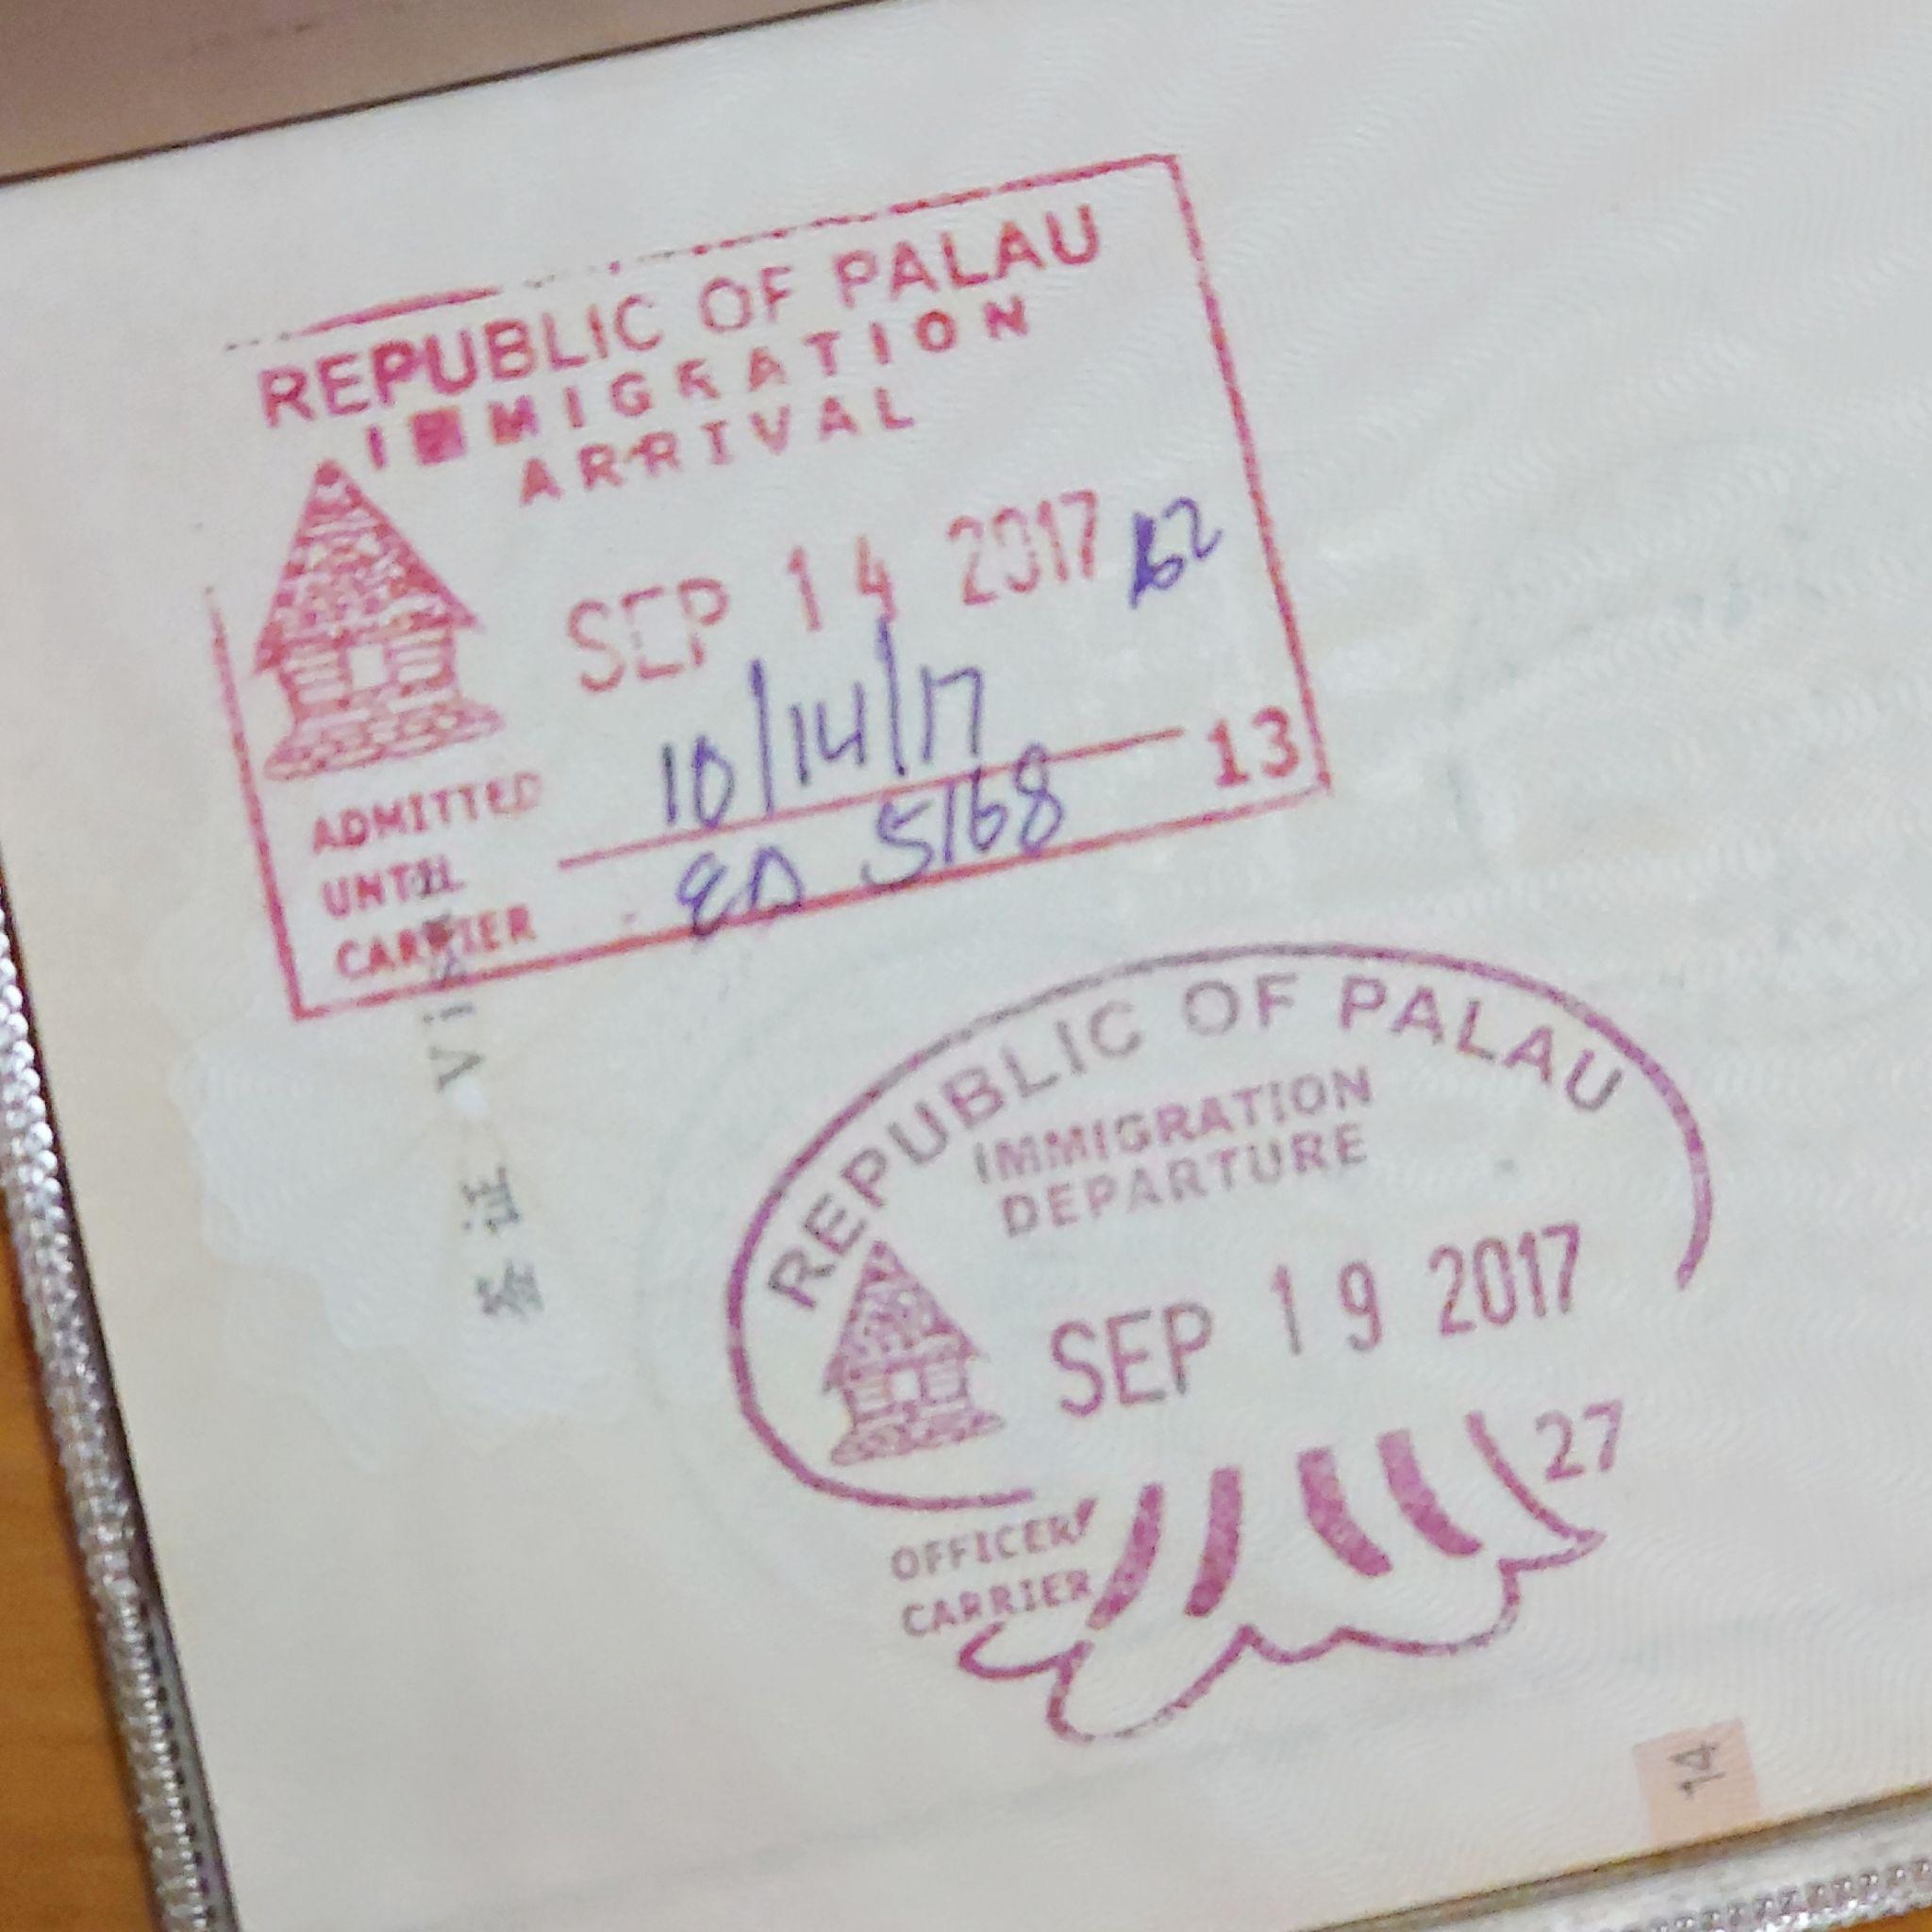 REPUBLIC OF PALAU
IMMIGRATION
ARRIVAL
SEP 14 2017
10/14/17
13
ADMITTED
UNTIL
CARRIER 5168
签证 Visa
REPUBLIC OF PALAU
IMMIGRATION
DEPARTURE
SEP 19 2017
27
OFFICER/
CARRIER
14